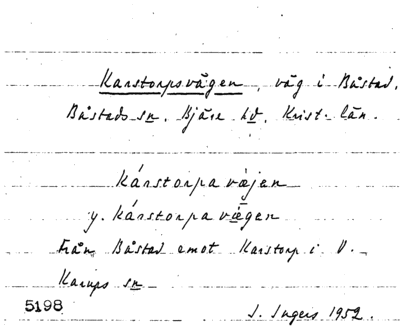 Karstorpsvägen, väg i Båstad,
Båstads sn. Bjäre hd, Krist. län.
kárstorpa väjen
y. kárstorpa vägen
Från Båstad emot Karstorp i V.
Karups sn
5198
I. Ingers 1952.